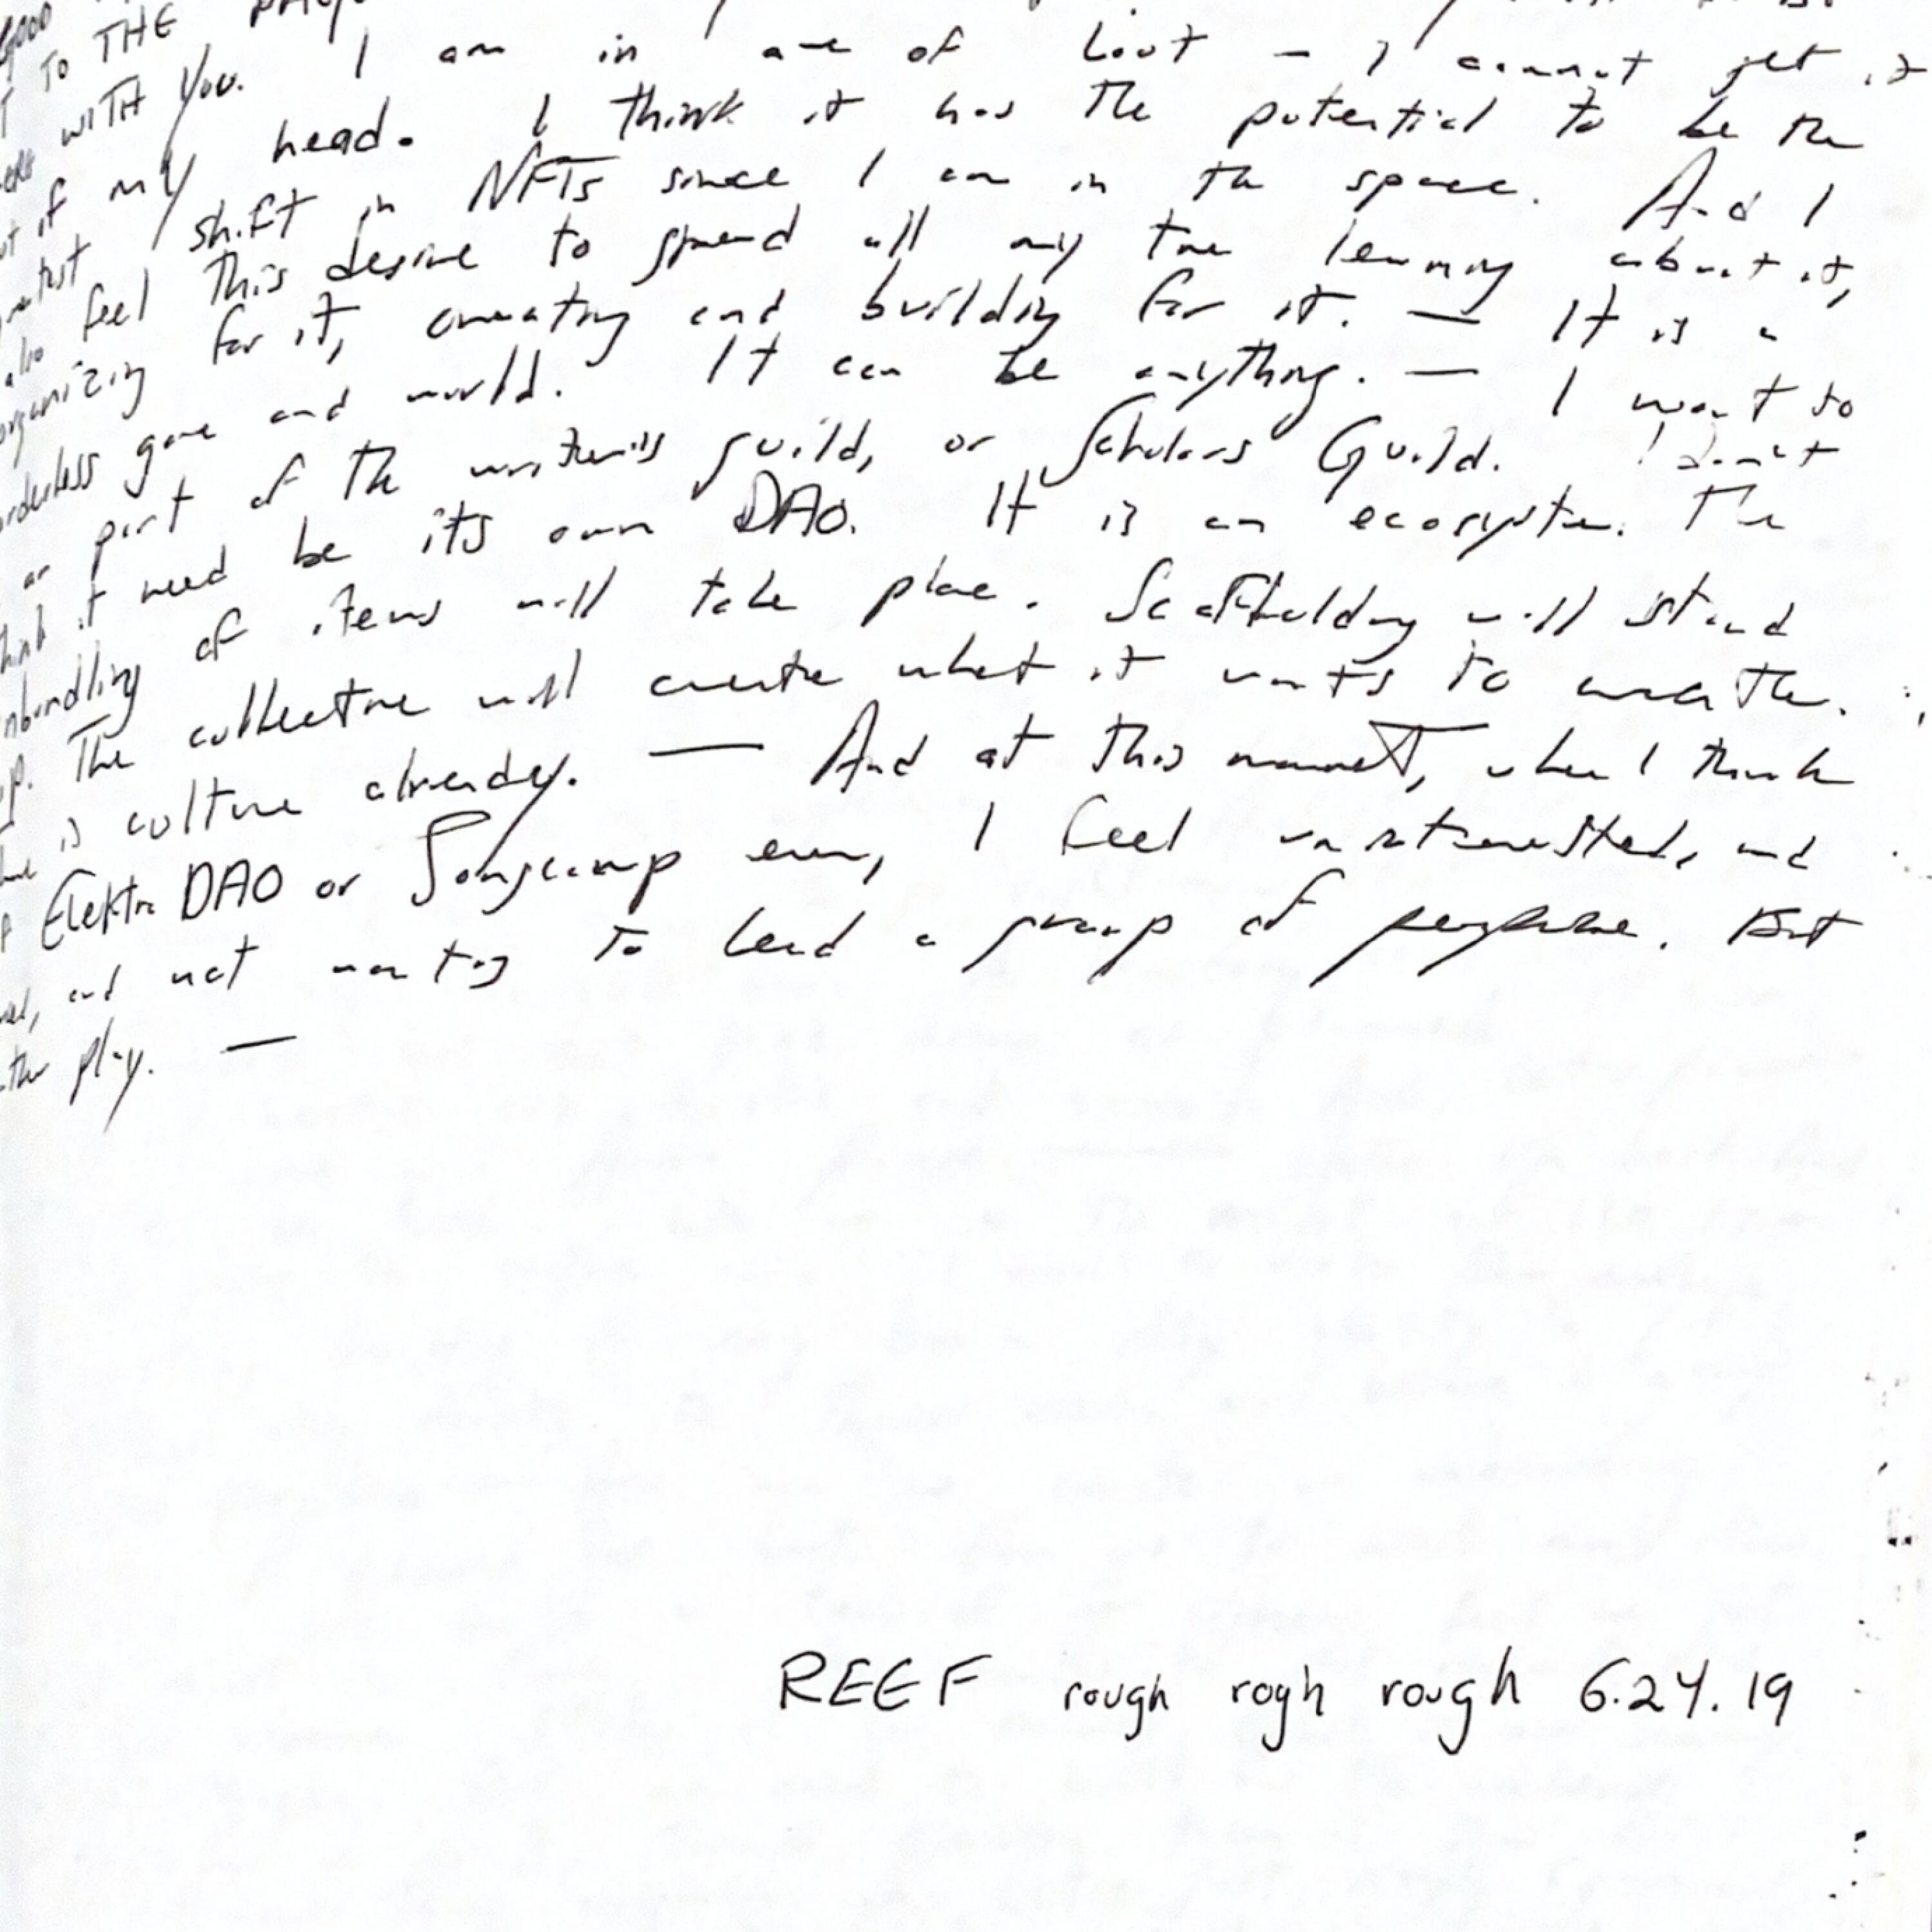 TO THE
WITH YOU. I am in awe of Loot – I cannot get it
if my head. I think it has the potential to be the
shift in NFTs since I am in the space. And I
feel this desire to spend all my time learning about it,
organizing for it, creating and building for it. — It is a
game and world. It can be anything. — I want to
part of the writer's guild, or Scholars Guild. I don't
it need be its own DAO. It is an ecosystem. The
of items will take place. Scaffolding will stand
up. The collective will create what it wants to create.
is culture already. — And at this moment, when I think
Elektra DAO or Songcamp even, I feel uninterested, and
and not wanting to lead a group of people. But
play. —
REEF rough rogh rough 6.24.19